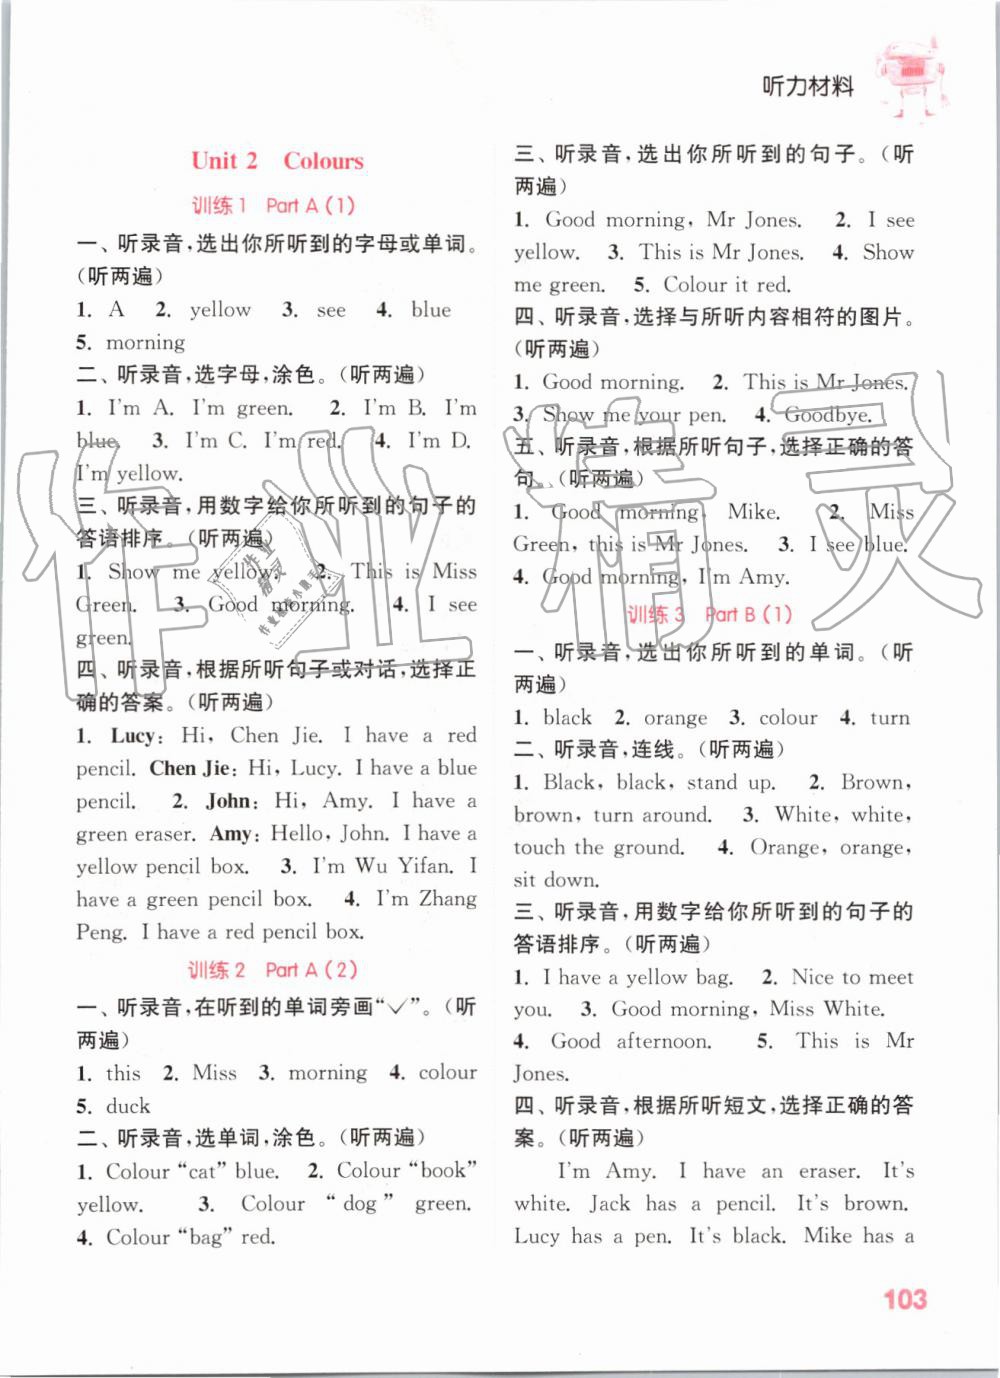 听力材料
Unit 2 Colours
训练1 Part A(1)
一、听录音,选出你所听到的字母或单词。
(听两遍)
1. A 2. yellow 3. see 4. blue
5. morning
二、听录音,选字母,涂色。(听两遍)
1. I'm A. I'm green. 2. I'm B. I'm
blue. 3. I'm C. I'm red. 4. I'm D.
I'm yellow.
三、听录音,用数字给你所听到的句子的
答语排序。(听两遍)
1. Show me yellow. 2. This is Miss
Green. 3. Good morning. 4. I see
green.
四、听录音,根据所听句子或对话,选择正
确的答案。(听两遍)
1. Lucy: Hi, Chen Jie. I have a red
pencil. Chen Jie: Hi, Lucy. I have a blue
pencil. 2. John: Hi, Amy. I have a
green eraser. Amy: Hello, John. I have a
yellow pencil box. 3. I'm Wu Yifan. I
have a green pencil box. 4. I'm Zhang
Peng. I have a red pencil box.
训练2 Part A(2)
一、听录音,在听到的单词旁画“✓”。(听
两遍)
1. this 2. Miss 3. morning 4. colour
5. duck
二、听录音,选单词,涂色。(听两遍)
1. Colour “cat” blue. 2. Colour “book”
yellow. 3. Colour “dog” green.
4. Colour “bag” red.
三、听录音,选出你所听到的句子。(听
两遍)
1. Good morning, Mr Jones. 2. I see
yellow. 3. This is Mr Jones. 4. Show
me green. 5. Colour it red.
四、听录音,选择与所听内容相符的图片。
(听两遍)
1. Good morning. 2. This is Mr Jones.
3. Show me your pen. 4. Goodbye.
五、听录音,根据所听句子,选择正确的答
句。(听两遍)
1. Good morning, Mike. 2. Miss
Green, this is Mr Jones. 3. I see blue.
4. Good morning, I'm Amy.
训练3 Part B(1)
一、听录音,选出你所听到的单词。(听
两遍)
1. black 2. orange 3. colour 4. turn
二、听录音,连线。(听两遍)
1. Black, black, stand up. 2. Brown,
brown, turn around. 3. White, white,
touch the ground. 4. Orange, orange,
sit down.
三、听录音,用数字给你所听到的句子的
答语排序。(听两遍)
1. I have a yellow bag. 2. Nice to meet
you. 3. Good morning, Miss White.
4. Good afternoon. 5. This is Mr
Jones.
四、听录音,根据所听短文,选择正确的答
案。(听两遍)
I'm Amy. I have an eraser. It's
white. Jack has a pencil. It's brown.
Lucy has a pen. It's black. Mike has a
103
作业精灵